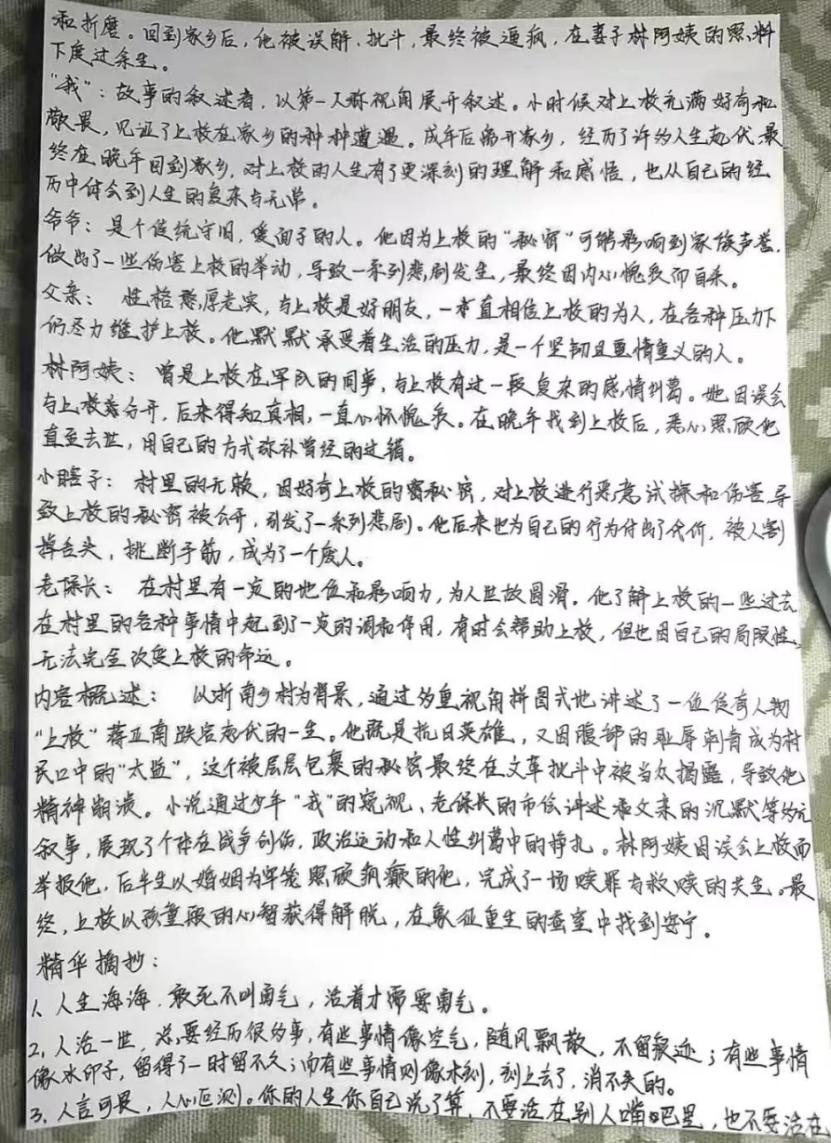 和折磨。回到家乡后，他被误解、批斗，最终被逼疯，在妻子林阿姨的照料
下度过余生。
"我"：故事的叙述者，以第一人称视角展开叙述。小时候对上校充满好奇和
敬畏，见证了上校在家乡的种种遭遇。成年后离开家乡，经历了许多人生起伏，最
终在晚年回到家乡，对上校的人生有了更深刻的理解和感悟，也从自己的经
历中体会到人生的复杂与无常。
爷爷：是个传统守旧，爱面子的人。他因为上校的"秘密"可能影响到家族声誉，
做出了一些伤害上校的举动，导致一系列悲剧发生，最终因内心愧疚而自杀。
父亲：性格憨厚老实，与上校是好朋友，一直相信上校的为人，在各种压力下
仍尽力维护上校。他默默承受着生活的压力，是一个坚韧且重情重义的人。
林阿姨：曾是上校在军队的同事，与上校有过一段复杂的感情纠葛。她因误会
与上校分开，后来得知真相，一直心怀愧疚。在晚年找到上校后，悉心照顾他
直至去世，用自己的方式弥补曾经的过错。
小瞎子：村里的无赖，因好奇上校的秘密，对上校进行恶意试探和伤害，导
致上校的秘密被公开，引发了一系列悲剧。他后来也为自己的行为付出了代价，被人割
掉舌头，挑断手筋，成为了一个废人。
老保长：在村里有一定的地位和影响力，为人世故圆滑。他了解上校的一些过去，
在村里的各种事情中起到了一定的调和作用，有时会帮助上校，但也因自己的局限性，
无法完全改变上校的命运。
内容概述：以浙南乡村为背景，通过多重视角拼图式地讲述了一位传奇人物
"上校"蒋正南跌宕起伏的一生。他既是抗日英雄，又因腹部的耻辱刺青成为村
民口中的"太监"，这个被层层包裹的秘密最终在文革批斗中被当众揭露，导致他
精神崩溃。小说通过少年"我"的窥视、老保长的市侩讲述和父亲的沉默等多元
叙事，展现了个体在战争创伤，政治运动和人性纠葛中的挣扎。林阿姨因误会上校而
举报他，后半生以婚姻为牢笼照顾疯癫的他，完成了一场赎罪与救赎的共生。最
终，上校以孩童般的心智获得解脱，在象征重生的蚕室中找到安宁。
精华摘抄：
1、人生海海，敢死不叫勇气，活着才需要勇气。
2、人活一世，总要经历很多事，有些事情像空气，随风飘散，不留痕迹；有些事情
像水印子，留得了一时留不久；而有些事情则像木刻，刻上去了，消不失的。
3、人言可畏，人心叵测。你的人生你自己说了算，不要活在别人嘴巴里，也不要活在